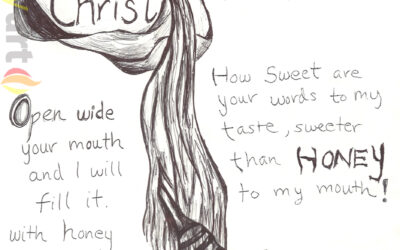 Christ
Open wide
your mouth
and I will
fill it.
with honey
How Sweet are
your words to my
taste, sweeter
than HONEY
to my mouth!
art